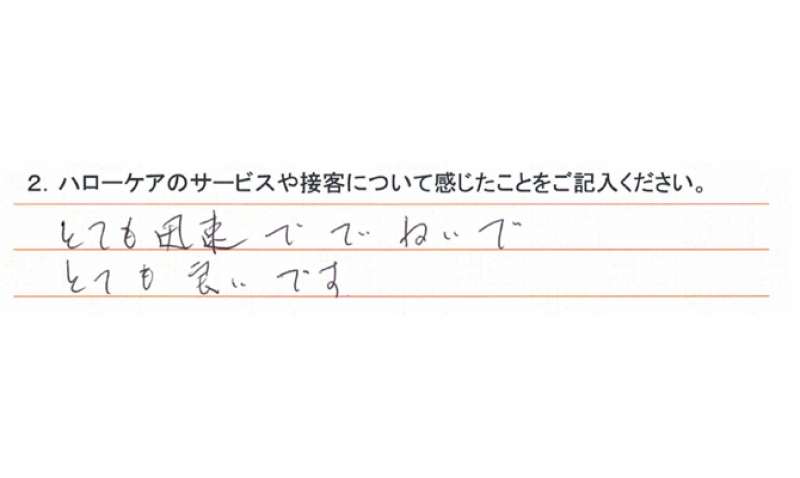 2. ハローケアのサービスや接客について感じたことをご記入ください。
とても迅速で でねいで
とても良いです